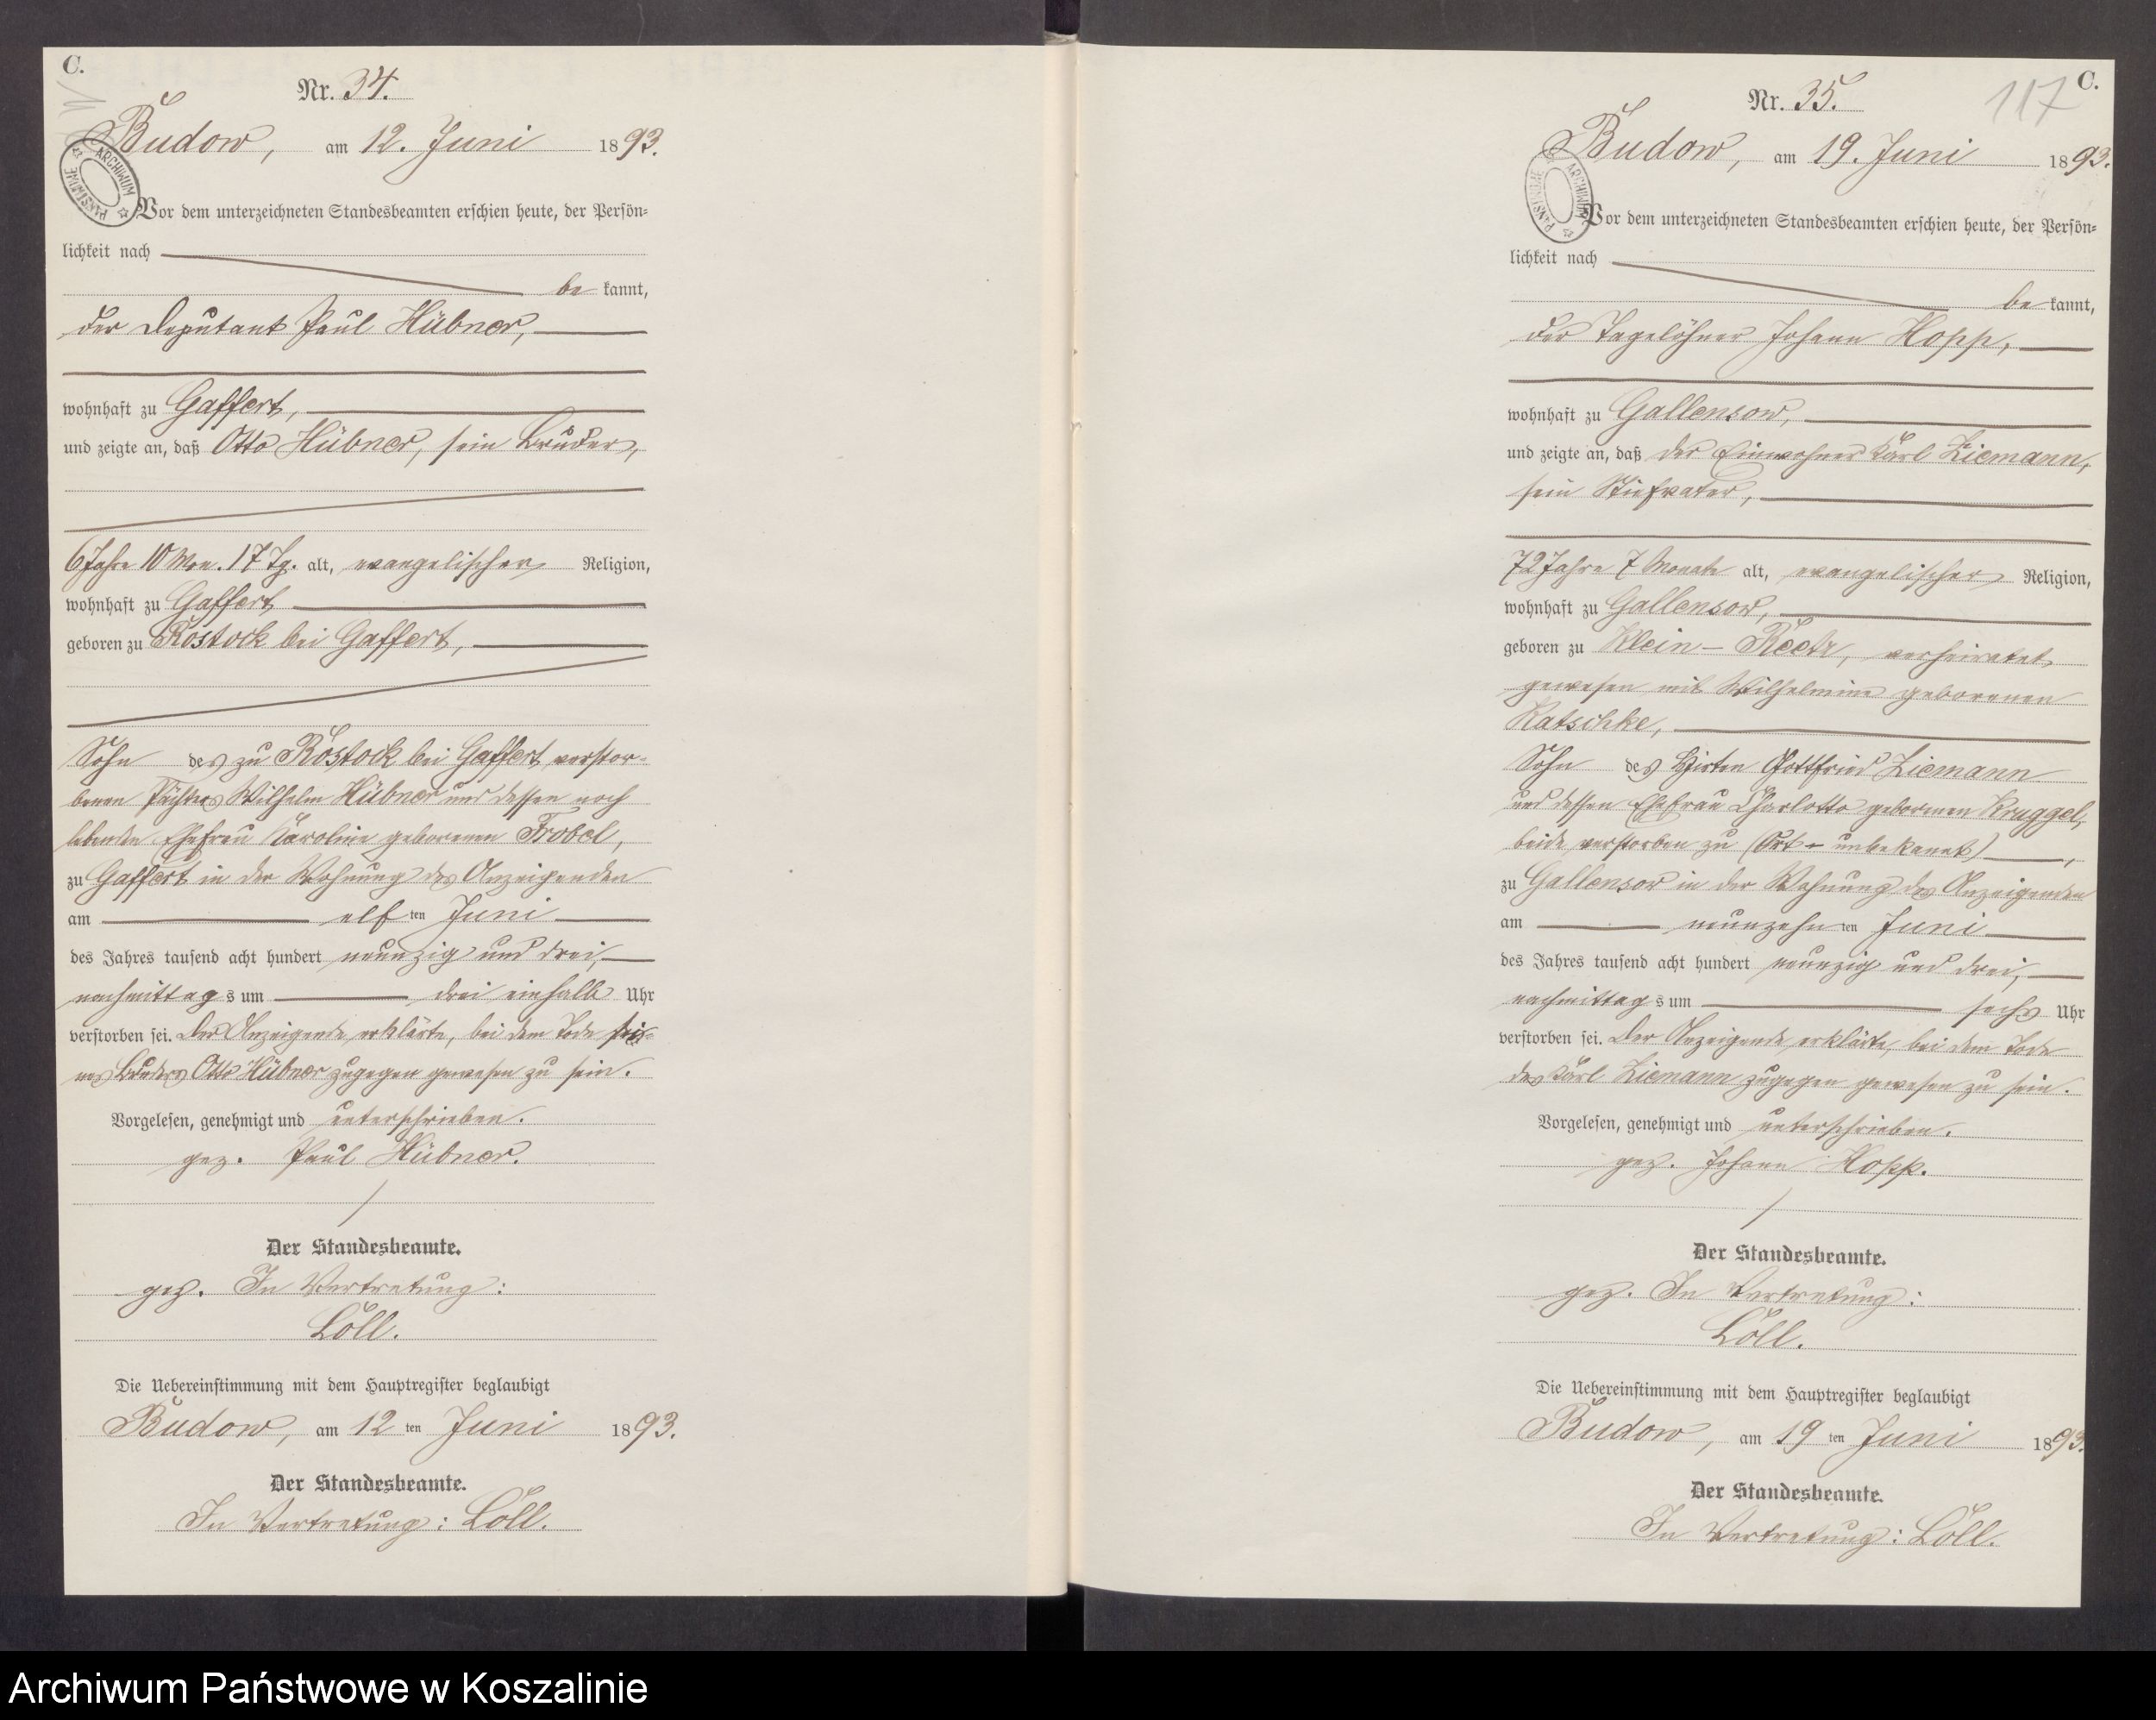 C.
Nr. 34.
Budow, am 12. Juni 1893.
ARCHIWUM PAŃSTWOWE
Vor dem unterzeichneten Standesbeamten erschien heute, der Persön-
lichkeit nach
be kannt,
der Deputant Paul Hübner,
wohnhaft zu Gaffert,
und zeigte an, daß Otto Hübner, sein Bruder,
6 Jahre 10 Mon. 17 Tg. alt, evangelischer Religion,
wohnhaft zu Gaffert
geboren zu Rostock bei Gaffert,
Sohn des zu Rostock bei Gaffert verstor-
benen Pächters Wilhelm Hübner und dessen noch
lebenden Ehefrau Karoline geborenen Frobel,
zu Gaffert in der Wohnung des Anzeigenden
am elf ten Juni
des Jahres tausend acht hundert neunzig und drei,
nachmittag s um drei einhalb Uhr
verstorben sei. Der Anzeigende erklärte, bei dem Tode sei-
nes Bruders Otto Hübner zugegen gewesen zu sein.
Vorgelesen, genehmigt und unterschrieben.
gez. Paul Hübner.
Der Standesbeamte.
gez. In Vertretung:
Löll.
Die Uebereinstimmung mit dem Hauptregister beglaubigt
Budow, am 12 ten Juni 1893.
Der Standesbeamte.
In Vertretung: Löll.
C.
117
Nr. 35.
Budow, am 19. Juni 1893.
ARCHIWUM PAŃSTWOWE
Vor dem unterzeichneten Standesbeamten erschien heute, der Persön-
lichkeit nach
be kannt,
der Tagelöhner Johann Hopp,
wohnhaft zu Gallensow,
und zeigte an, daß der Einwohner Karl Ziemann,
sein Stiefvater,
72 Jahre 7 Monate alt, evangelischer Religion,
wohnhaft zu Gallensow,
geboren zu Klein-Reetz, verheiratet
gewesen mit Wilhelmine geborenen
Ratschke,
Sohn des Hirten Gottfried Ziemann
und dessen Ehefrau Charlotte geborenen Kruggel,
beide verstorben zu (Ort - unbekannt),
zu Gallensow in der Wohnung des Anzeigenden
am neunzehn ten Juni
des Jahres tausend acht hundert neunzig und drei,
nachmittag s um sechs Uhr
verstorben sei. Der Anzeigende erklärte, bei dem Tode
des Karl Ziemann zugegen gewesen zu sein.
Vorgelesen, genehmigt und unterschrieben.
gez. Johann Hopp.
Der Standesbeamte.
gez. In Vertretung:
Löll.
Die Uebereinstimmung mit dem Hauptregister beglaubigt
Budow, am 19 ten Juni 1893.
Der Standesbeamte.
In Vertretung: Löll.
Archiwum Państwowe w Koszalinie